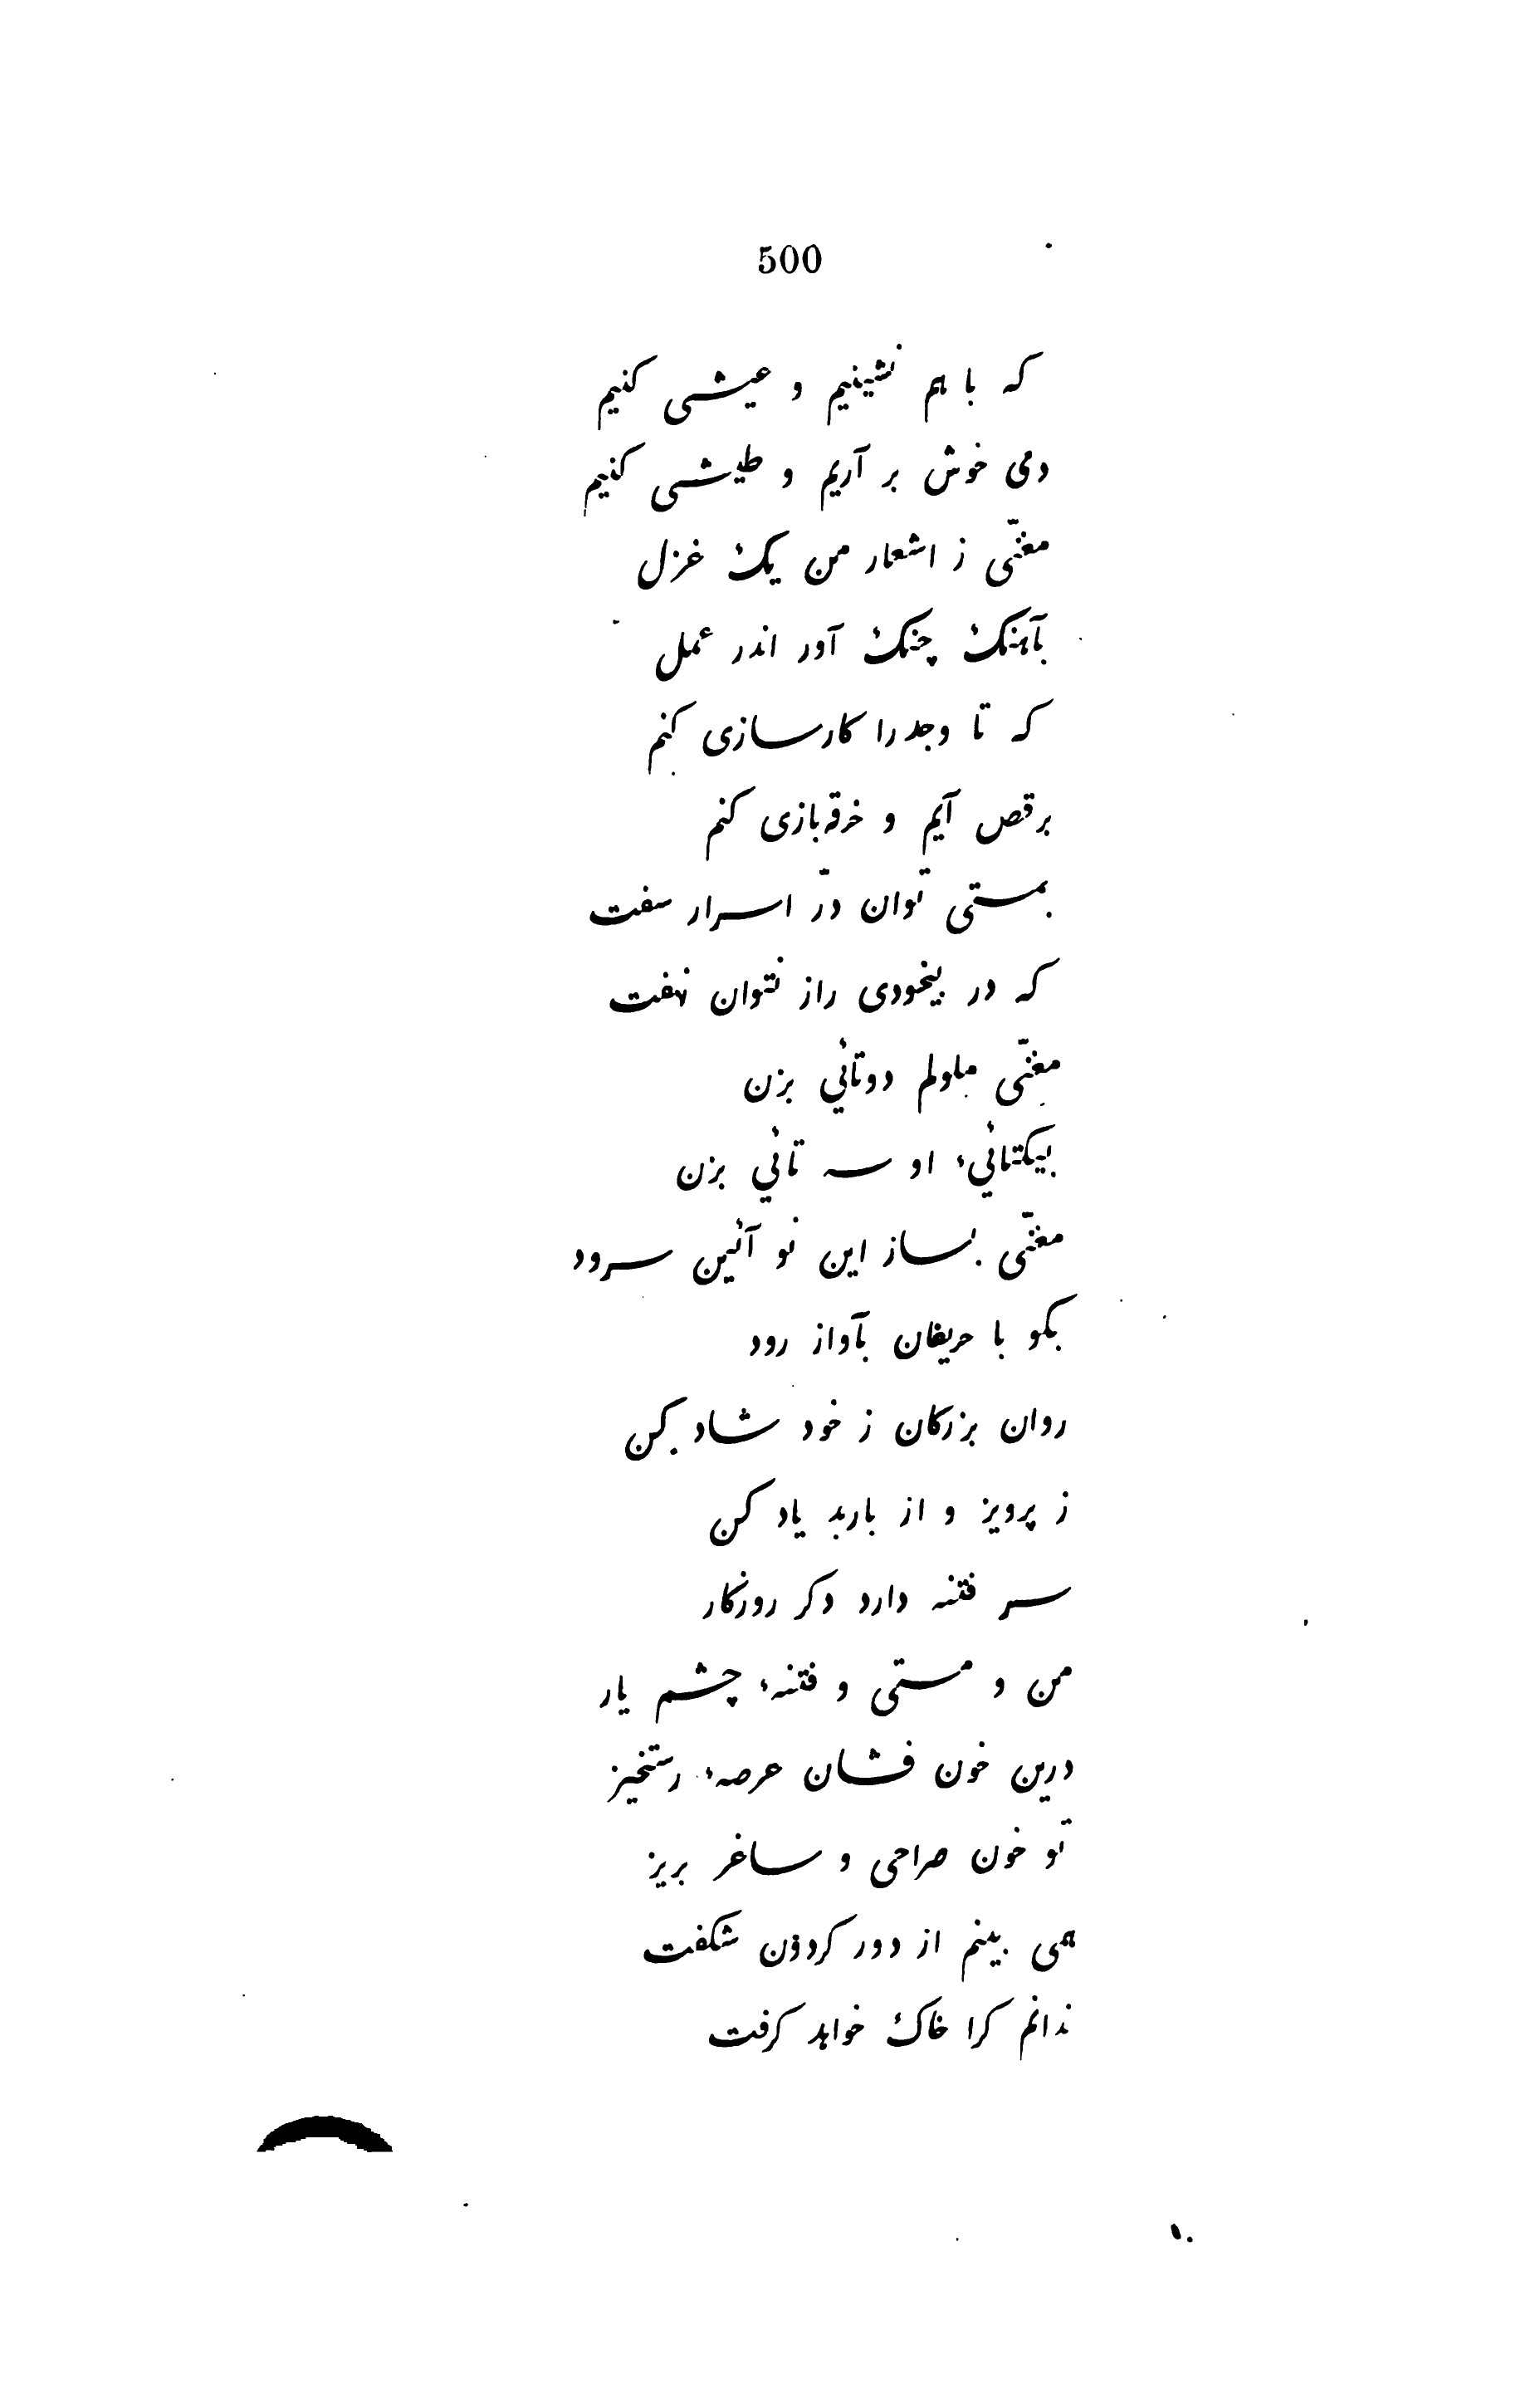 500
که با هم نشینیم و عیشی کنیم
دمی خوش بر آریم و طیشی کنیم
مغنّی ز اشعار من یک غزل
بآهنک چنک آور اندر عمل
که تا وجد را کارسازی کنم
برقص آیم و خرقه‌بازی کنم
بمستی توان درّ اسرار سفت
که در بیخودی راز نتوان نهفت
مغنّی ملولم دوتائی بزن
بیکتائیء او سه تائی بزن
مغنّی بساز این نو آئین سرود
بکو با حریفان بآواز رود
روان بزرکان ز خود شاد کن
ز پرویز و از باربد یاد کن
سر فتنه دارد دکر روزکار
من و مستی و فتنهء چشم یار
درین خون فشان عرصهء رستخیز
تو خون صراحی و ساغر بریز
همی بینم از دور کردون شکفت
ندانم کرا خاک خواهد کرفت